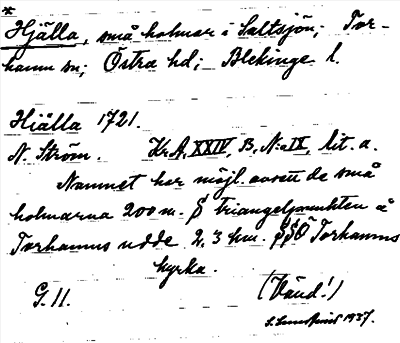 *
Hjälla, små holmar i Saltsjön; Tor-
hamn sn; Östra hd; Blekinge l.
Hiälla 1721.
N. Ström. Kr.A, XXIV, B, N:o IX, lit. a.
Namnet har möjl. avsett de små
holmarna 200 m. S triangelpunkten å
Torhamns udde 2,3 km. SSO Torhamns
kyrka.
G. 11. (Vänd!)
1937.